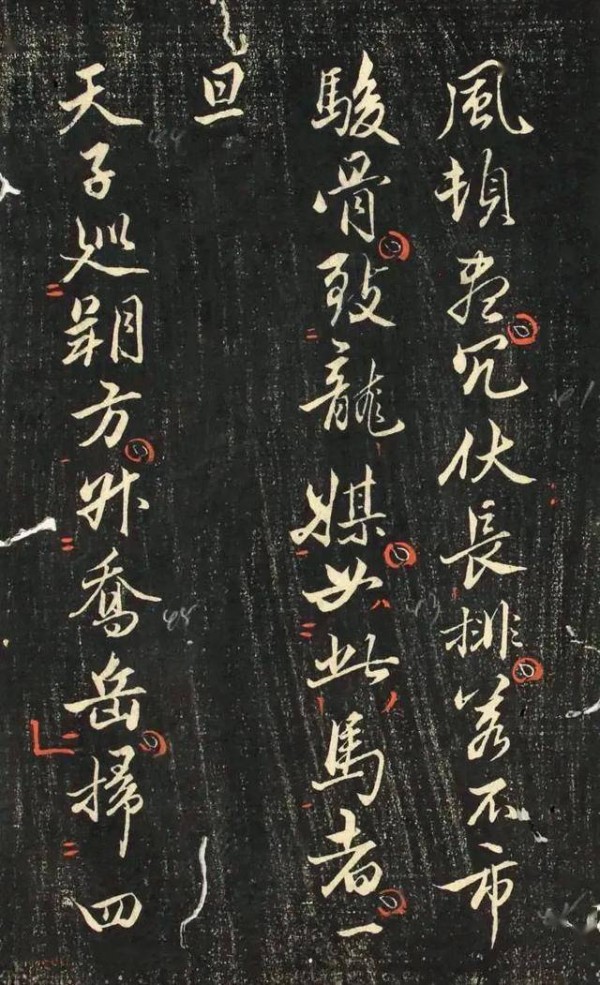 風頓盡冗仗長排若不市
駿骨致龍媒如此馬者一
旦
天子巡朔方升喬岳掃四